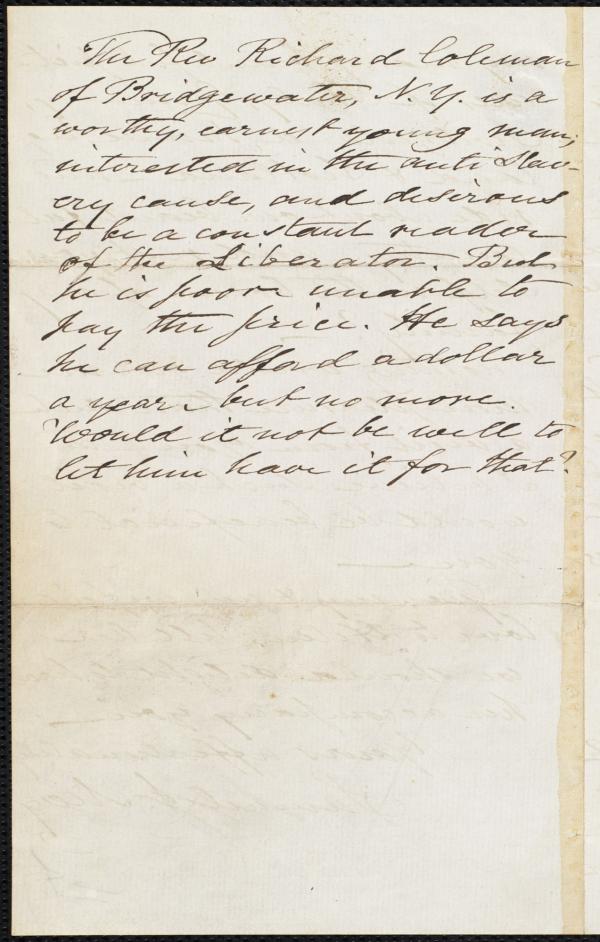 The Rev Richard Coleman
of Bridgewater, N.Y. is a
worthy, earnest young man,
interested in the anti Slav-
ery cause, and desirous
to be a constant reader
of the Liberator. But
he is poor unable to
pay the price. He says
he can afford a dollar
a year but no more.
Would it not be well to
let him have it for that?